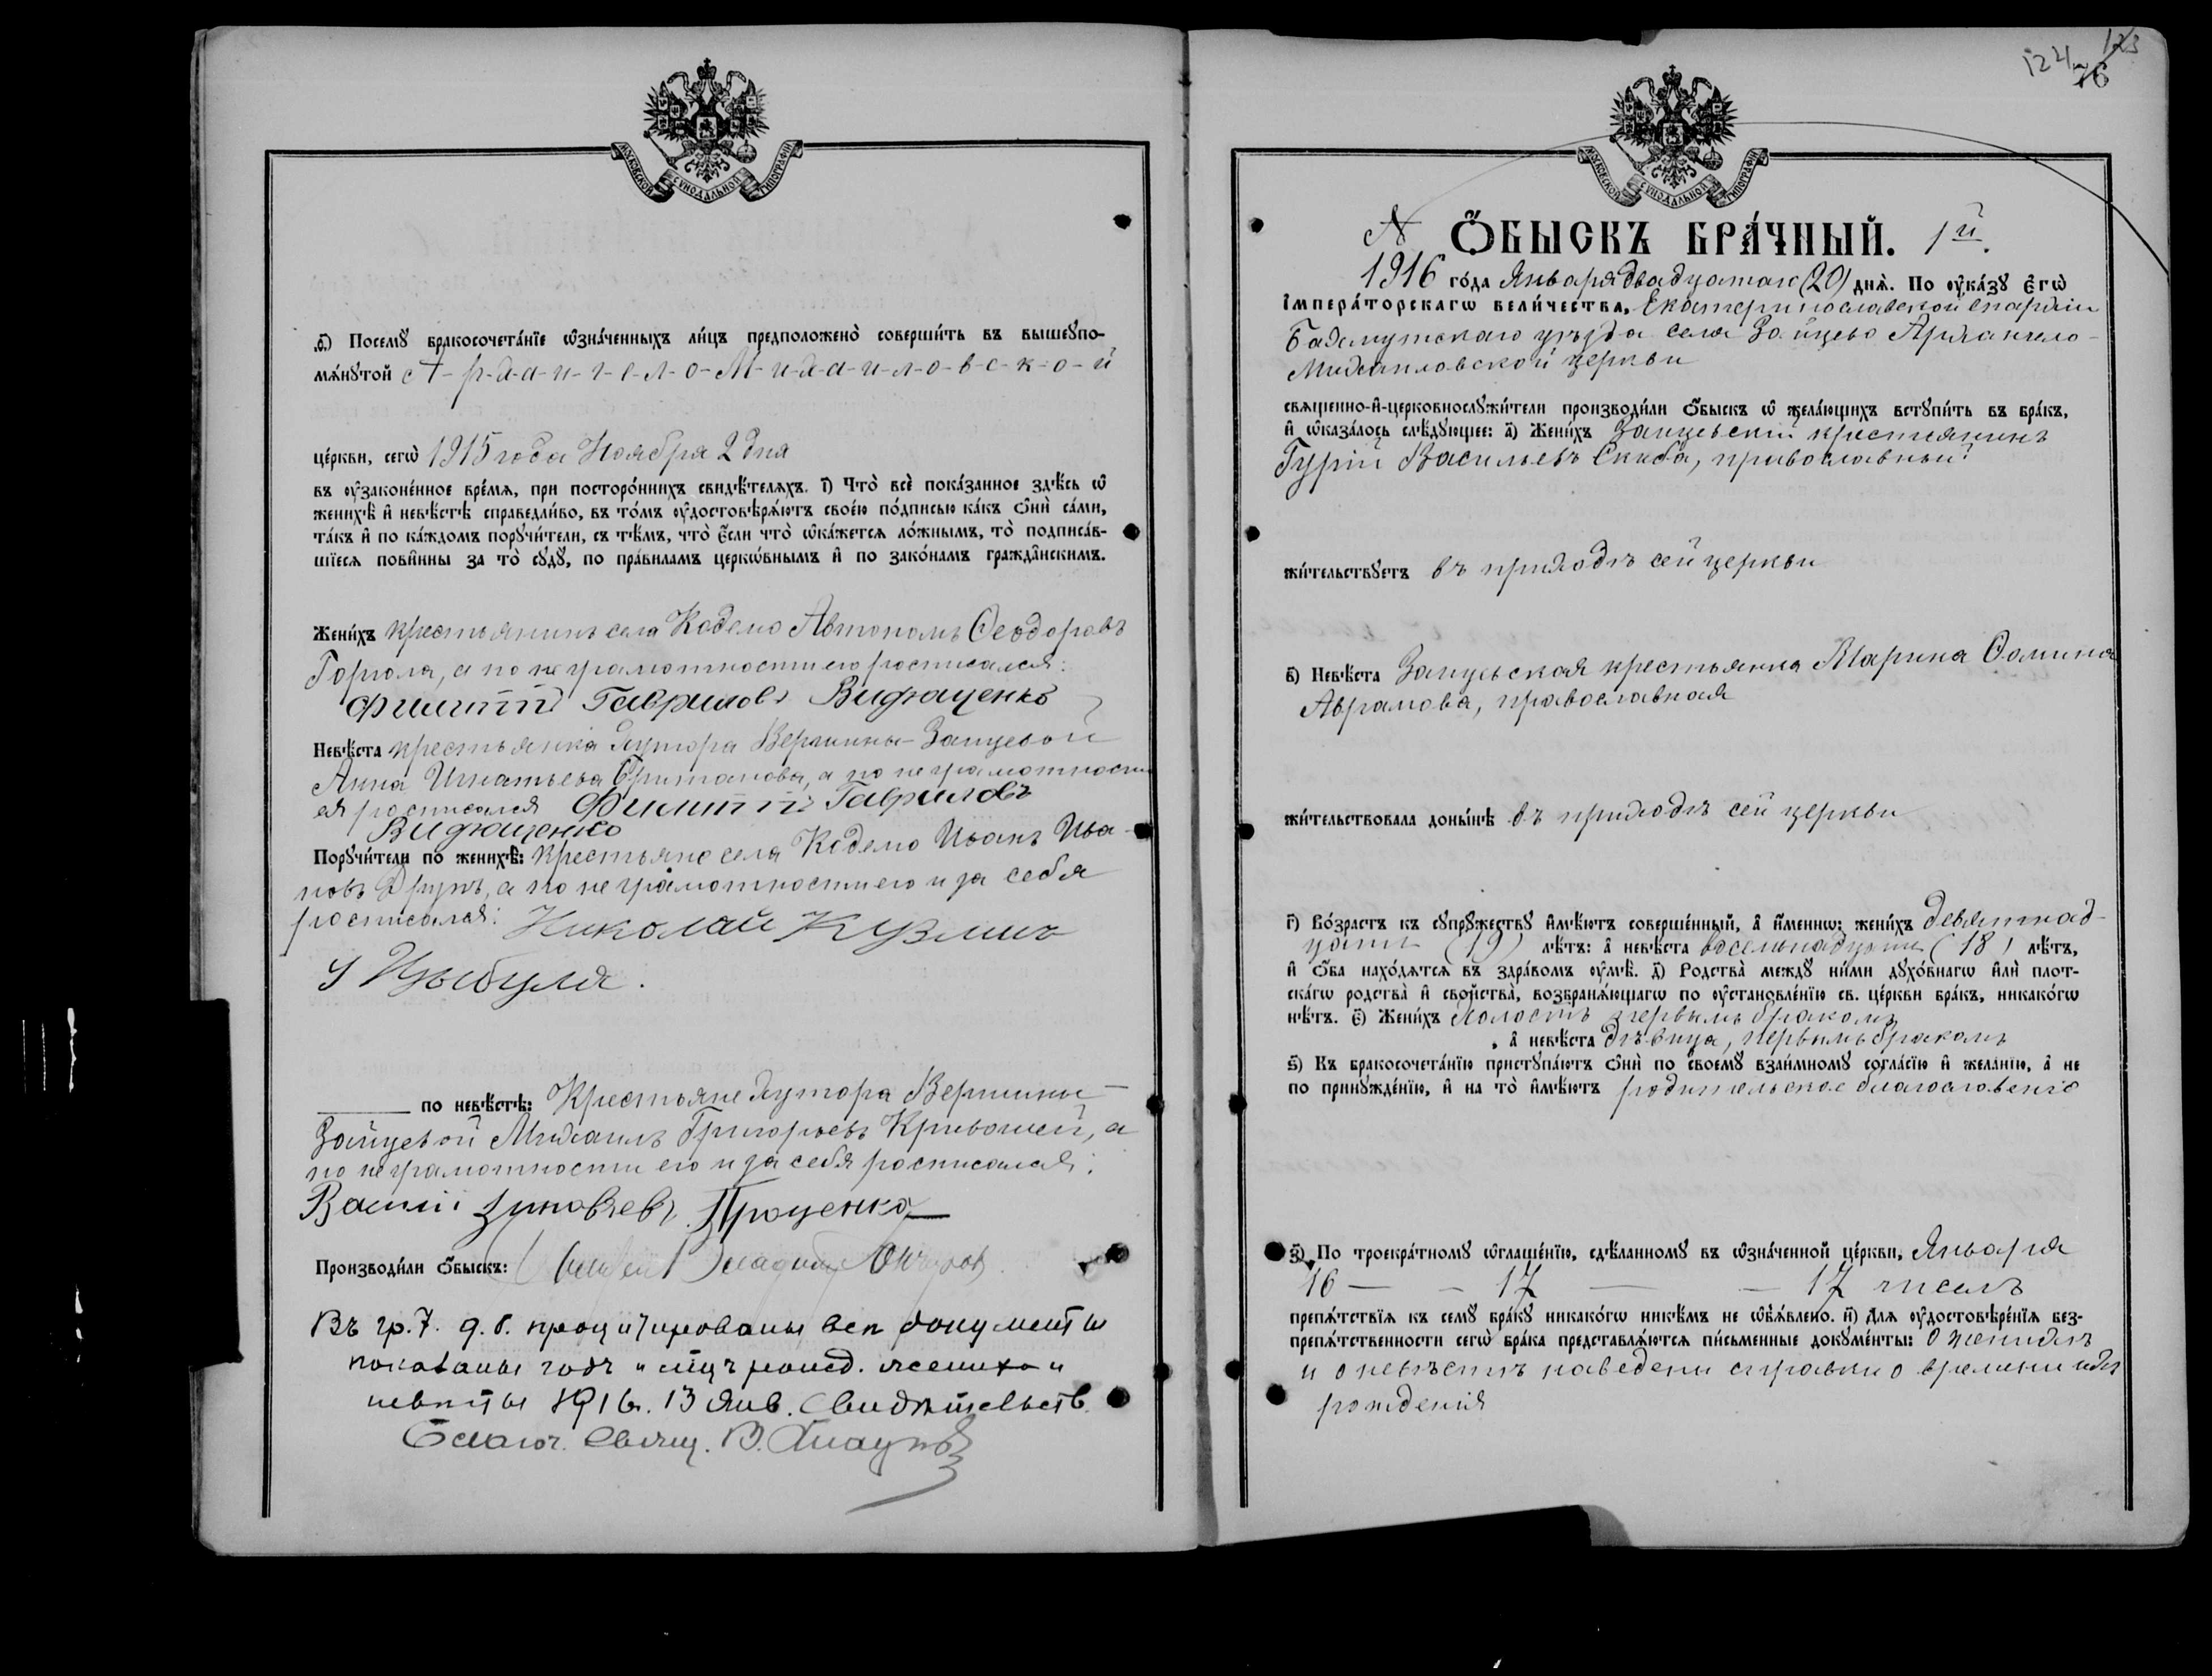 МОСКОВСКОЙ СУНОДАЛЬНОЙ ТИПОГРАФІИ
д҃і) Посемꙋ̀ бракосочета́нїе ѡ҆зна́ченныхъ ли́цъ предположено̀ соверши́ть въ вышеꙋпо-
мѧ́нꙋтой А-р-х-а-н-г-е-л-о-М-и-х-а-и-л-о-в-с-к-о-й
це́ркви, сегѡ̀ 1915 года Ноября 2 дня
въ оу҆законе́нное вре́мѧ, при посторо́ннихъ свидѣ́телѧхъ. і҃) Что̀ всѐ пока́занное здѣ́сь ѡ҆
женихѣ̀ и҆ невѣ́стѣ справедли́во, въ то́мъ оу҆достовѣрѧ́ютъ свое́ю по́дписью ка́къ ѻ҆нѝ са́ми,
та́къ и҆ по ка́ждомъ порꙋчи́тели, съ тѣ́мъ, что̀ є҆́сли что̀ ѡ҆ка́жетсѧ ло́жнымъ, то̀ подписа́в-
шїесѧ пови́нны за то̀ сꙋдꙋ̀, по пра́виламъ церкѡ́внымъ и҆ по зако́намъ гражда́нскимъ.
Жени́хъ крестьянинъ села Кодемо Автономъ Ѳеодоровъ
а по неграмотности его росписался:
Филиппъ Гавриловъ
Невѣ́ста крестьянка хутора Вершины-Зайцевой
Анна Игнатьева а по неграмотности
ея росписался Филиппъ Гавриловъ
Порꙋчи́тели по женихѣ̀: крестьяне села Кодемо Иванъ Ива-
новъ а по неграмотности его и за себя
росписался: Николай Кузмичъ
Цыбуля.
по невѣ́стѣ: Крестьяне хутора Вершины-
Зайцевой Михаилъ Григорьевъ Кривошей, а
по неграмотности его и за себя росписался:
Василій Зиновьевъ Проценко
Производи́ли ѻ҆́быскъ:
Въ гр. 7. документы
показаны годъ и жениха и
1916. 13 Янв.
Благоч. Свящ. В.
123
124
76
МОСКОВСКОЙ СУНОДАЛЬНОЙ ТИПОГРАФІИ
№ Ѻ҆́БЫСКЪ БРА́ЧНЫЙ. 1й.
1916 го́да Января двадцатаго (20) днѧ̀. По оу҆ка́зꙋ є҆гѡ̀
і҆мпера́торскагѡ вели́чества, Екатеринославской епархіи
Бахмутскаго уѣзда села Зайцево Архангело-
Михайловской церкви
свѧщенно-и҆-церковнослꙋжи́тели производи́ли ѻ҆́быскъ ѡ҆ жела́ющихъ встꙋпи́ть въ бра́къ,
и҆ ѡ҆каза́лось слѣ́дꙋющее: а҃) Жени́хъ Зайцевскій крестьянинъ
Гурій Васильевъ Скиба, православный
жи́тельствꙋетъ въ приходѣ сей церкви
в҃) Невѣ́ста Зайцевская крестьянка Марина Ѳомина
Аврамова, православная
жи́тельствовала доны́нѣ въ приходѣ сей церкви
г҃) Во́зрастъ къ сꙋпрꙋ́жествꙋ и҆мѣ́ютъ соверше́нный, а҆ и҆́меннѡ: жени́хъ девятнад-
цати (19) лѣ́тъ: а҆ невѣ́ста восемьнадцати (18) лѣ́тъ,
и҆ ѻ҆́ба нахо́дѧтсѧ въ здра́вомъ оу҆мѣ̀. д҃) Родства̀ междꙋ ни́ми дꙋхо́внагѡ и҆лѝ плот-
ска́гѡ родства̀ и҆ сво́йства, возбранѧ́ющагѡ по оу҆становле́нїю св. це́ркви бра́къ, никако́гѡ
нѣ́тъ. є҃) Жени́хъ холостъ первымъ бракомъ,
а҆ невѣ́ста дѣвица, первымъ бракомъ
ѕ҃) Къ бракосочета́нїю пристꙋпа́ютъ ѻ҆нѝ по своемꙋ̀ взаи́мномꙋ согла́сїю и҆ жела́нїю, а҆ не
по принꙋжде́нїю, и҆ на то̀ и҆мѣ́ютъ родительское благословеніе
з҃) По троекра́тномꙋ ѡ҆глаше́нїю, сдѣ́ланномꙋ въ ѡ҆зна́ченной це́ркви, Января
16 — 17 — 17 чиселъ
препѧ́тствїѧ къ семꙋ̀ бра́кꙋ никако́гѡ никѣ́мъ не ѡ҆б̾ѧ́влено. и҃) Длѧ оу҆достовѣре́нїѧ без-
препѧ́тственности сегѡ̀ бра́ка представлѧ́ютсѧ пи́сьменные докꙋме́нты: О женихѣ
и о невѣстѣ наведены справки о времени ихъ
рожденія